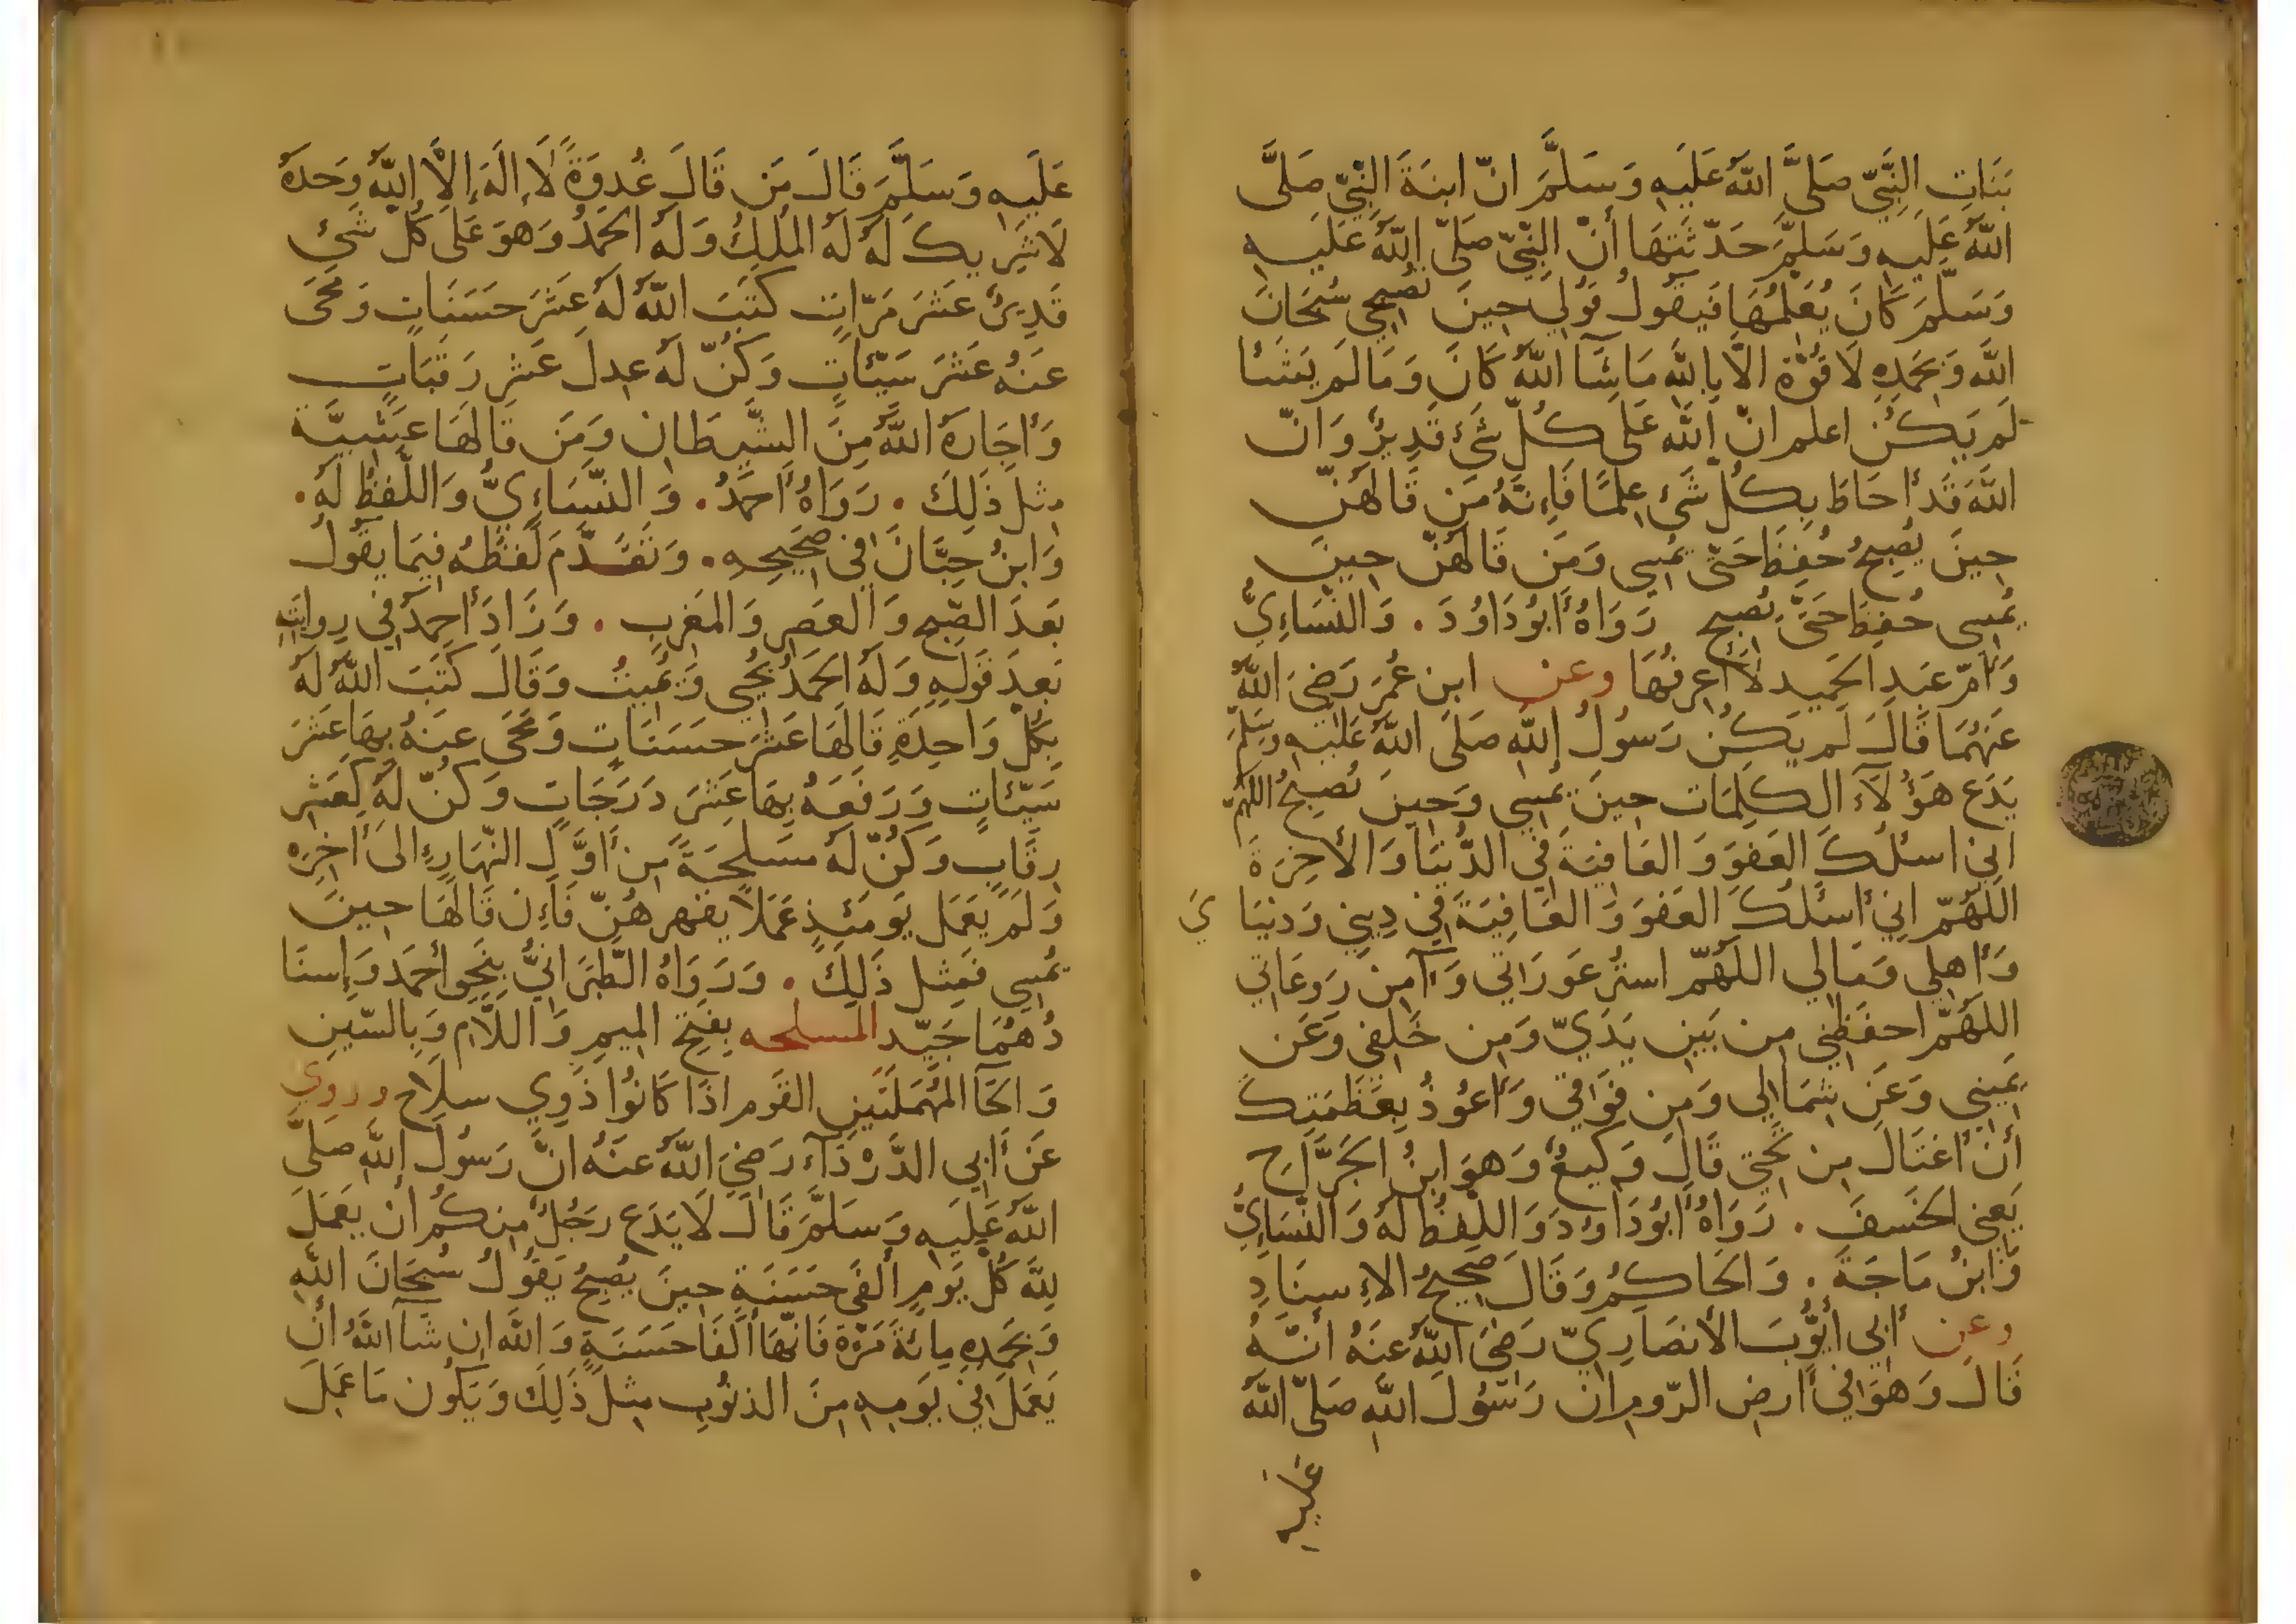 بَنَاتِ النَّبِيِّ صَلَّى اللَّهُ عَلَيهِ وَسَلَّمَ انّ ابنَةَ النَّبِيِّ صَلَّى
اللَّهُ عَلَيهِ وَسَلَّمَ حَدّثَتهَا أنّ النَّبِيّ صَلَّى اللَّهُ عَلَيهِ
وَسَلَّمَ كَانَ يُعَلِّمُهَا فَيَقُولُ قُولِي حِينَ تُصبِحِي سُبحَانَ
اللَّهِ وَبِحَمدِهِ لَا قُوَّة الَّا بِاللَّهِ مَا شَآ اللَّهُ كَانَ وَمَا لَم يَشَأ
لَم يَكُن اعلم انّ اللَّه عَلَى كُلِّ شَئ قَدِيرٌ وَانّ
اللَّهَ قَد أحَاطَ بِكُلِّ شَئ عِلمًا فَإِنّهُ مَن قَالَهُنّ
حِينَ يُصبِحُ حُفِظَ حَتَّى يُمسِي وَمَن قَالَهُنّ حِينَ
يُمسِي حُفِظَ حَتَّى يُصبِح رَوَاهُ أَبُو دَاوُدَ . وَالنّسَاءِيُّ
وَأمّ عَبدِ الحَمِيدِ لَا أعرِفُهَا وعن ابنِ عُمَرَ رَضِيَ اللَّهُ
عَنهُمَا قَالَ لَم يَكُن رَسُولُ اللَّهِ صَلَّى اللَّهُ عَلَيهِ وَسَلَّمَ
يَدَع هَؤُلَآءِ الكَلِمَات حِينَ يُمسِي وَحِينَ يُصبِحُ اللهُمَّ
انِّي اسئَلُكَ العَفوَ وَالعَافِيَةَ فِي الدُّنيَا وَالأخِرَةَ
اللَّهُمّ انِّي أسئَلُكَ العَفوَ وَالعَافِيَةَ فِي دِينِي وَدُنيَا يَ
وَأهلِي وَمَالِي اللَّهُمّ استُر عَورَاتي وَآمِن رَوعَاتي
اللَّهُمَّ احفَظنِي مِن بَينِ يَدَيّ وَمِن خَلفِي وَعَن
يَمِينِي وَعَن شِمَالِي وَمِن فَوقِي وَأعُوذُ بِعَظَمَتِكَ
أن أغتَالَ مِن تَحتِي قَالَ وَكِيعٌ وَهوَ ابنُ الجَرَّاحِ
يَعنِي الخَسفَ . رَوَاهُ أبُو دَاوُدَ وَاللّفظُ لَهُ وَالنّسَاءِيُّ
وَابنُ مَاجَةَ . وَالحَاكِمُ وَقَالَ صَحِيحُ الإسنَادِ
وعن أَبِي أيُّوبَ الأنصَارِيّ رَضِيَ اللَّهُ عَنهُ أنّهُ
قَالَ وَهوَ فِي أرضِ الرّومِ انّ رَسُولَ اللَّهِ صَلَّى اللَّهُ
عَلَيهِ
عَلَيهِ وَسَلَّمَ قَالَ مَن قَالَ غُدوَةً لَا إلَهَ إلَّا اللَّه وَحدَهُ
لَا شَرِيكَ لَهُ لَهُ المُلكُ وَلَهُ الحَمدُ وَهوَ عَلَى كُلِّ شَئ
قَدِيرٌ عَشرَ مَرّات كَتَبَ اللَّهُ لَهُ عَشرَ حَسَنَاتٍ وَمَحَى
عَنهُ عَشرَ سَيّئَاتٍ وَكُنّ لَهُ عِدلَ عَشرِ رَقَبَاتٍ
وَأجَارَهُ اللَّهُ مِنَ الشَّيطَانِ وَمَن قَالَهَا عَشِيَّة
مِثلَ ذَلِكَ . رَوَاهُ أحمَدُ . وَالنّسَاءِيُّ وَاللّفظُ لَهُ .
وَابنُ حِبَّانَ فِي صَحِيحِهِ . وَتَقَدَّمَ لَفظُهُ فِيمَا يَقُولُ
بَعدَ الصّبحِ وَالعَصرِ وَالمَغرِبِ . وَزَادَ أحمَدُ فِي رِوايَتِهِ
بَعدَ قَولِهِ وَلَهُ الحَمدُ يُحيِي وَيُمِيتُ وَقَالَ كَتَبَ اللَّهُ لَهُ
بِكُلِّ وَاحِدَةٍ قَالَهَا عَشرَ حَسَنَاتٍ وَمَحَى عَنهُ بِهَا عَشرَ
سَيّئاتٍ وَرَفَعَهُ بِهَا عَشرَ دَرَجَاتٍ وَكُنّ لَهُ كَعَشرِ
رِقَابٍ وَكُنّ لَهُ مَسلَحَةً مِن أوَّلِ النّهَارِ إلَى أخِرِهِ
وَلَم يَعمَل يَومَئِذٍ عَمَلًا يقهرهُنّ فَإن قَالَهَا حِينَ
يُمسِي فَمِثل ذَلِكَ . وَرَوَاهُ الطّبَرَانِيُّ بِنَحوِ أحمَد وَإسنَا
دُهُمَا جَيِّد المسلحه بِفَتحِ المِيمِ وَاللَّامِ وَبِالسّينِ
وَالحَآ المُهمَلَتَينِ القَوم اذَا كَانُوا ذَوِي سلَاحِ وروي
عَن أَبِي الدَّردَآءِ رَضِيَ اللَّهُ عَنهُ انَّ رَسُولَ اللَّهِ صَلَّى
اللَّهُ عَلَيهِ وَسَلَّمَ قَالَ لَا يَدَع رَجُلٌ مِنكُم أن يَعمَلَ
لِلَّهِ كُلّ يَومٍ ألفَي حَسَنَةٍ حِينَ يُصبِحُ يَقُولُ سُبحَانَ اللَّهِ
وَبِحَمدِهِ مِائَةَ مَرّة فَانّهَا ألفَا حَسَنَةٍ وَاللَّه ان شَآ اللَّهُ أن
يَعمَلَ فِي يَومِهِ مِنَ الذنُوبِ مِثلَ ذَلِكَ وَيَكُون مَا عَمِلَ